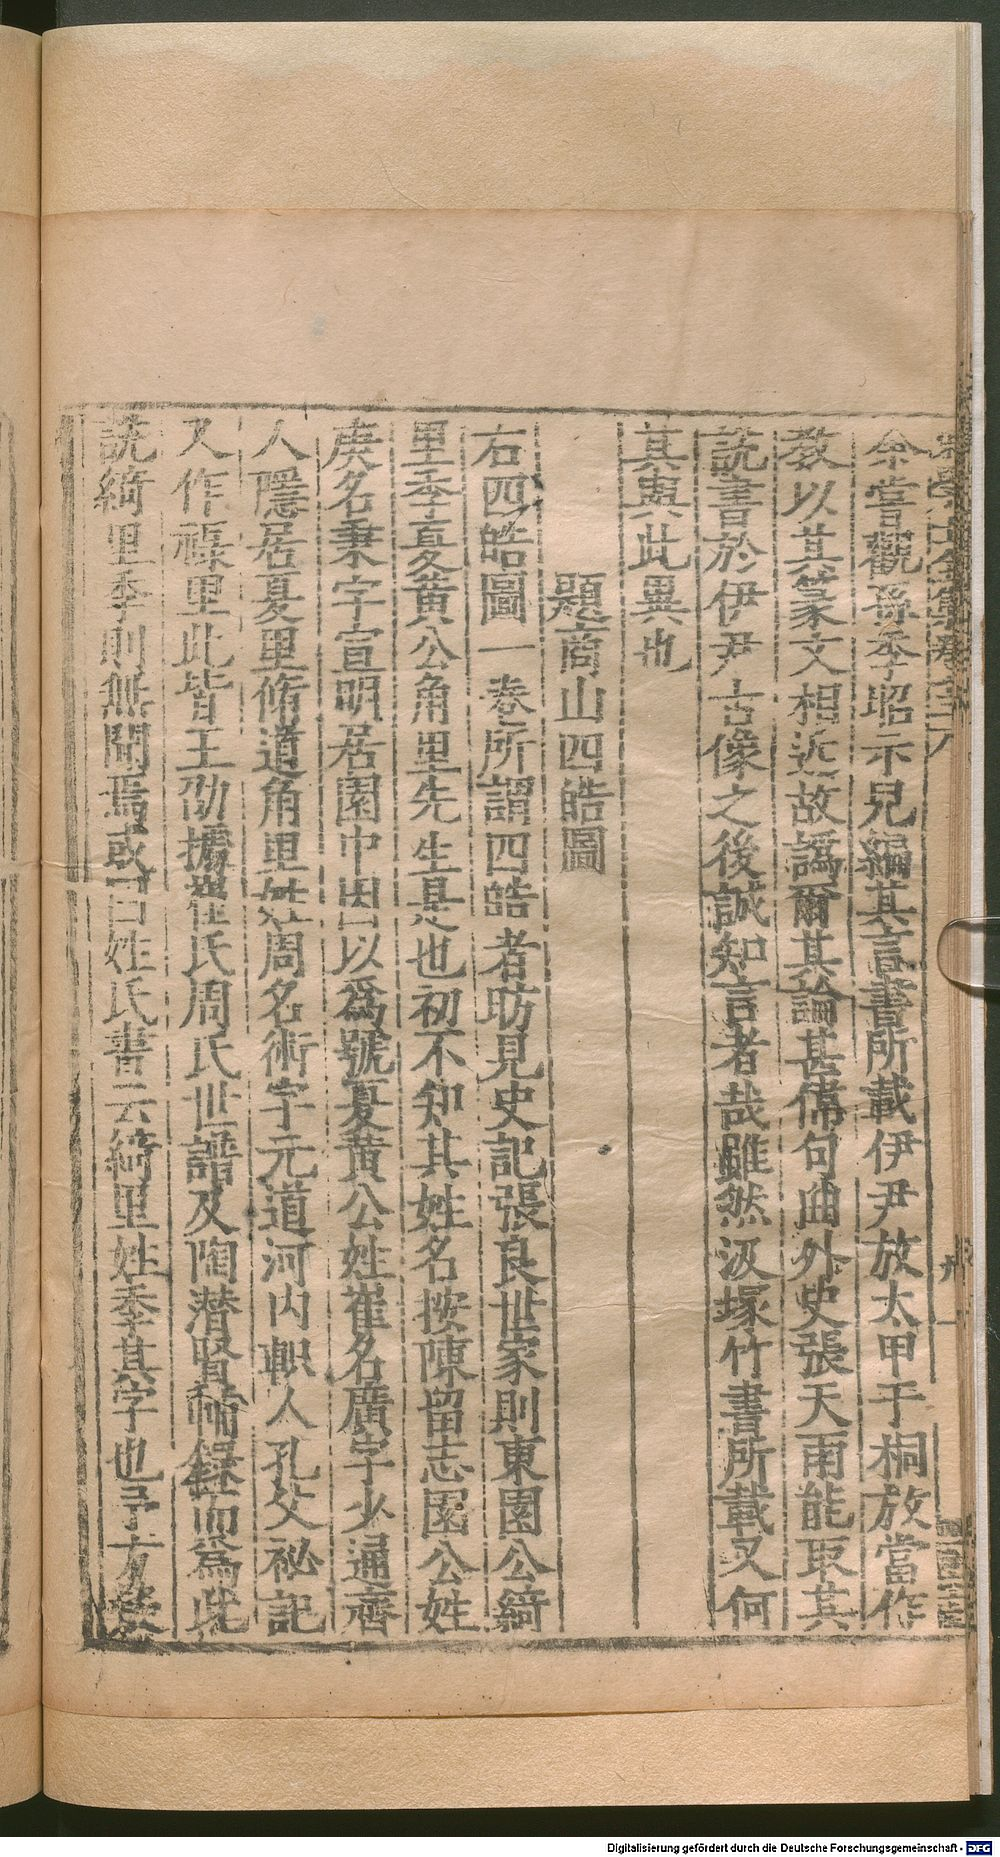 余嘗觀孫季昭示兒編其言書所載伊尹放太甲于桐放當作
教以其篆文相近故譌爾其論甚偉句曲外史張天雨能取其
説書於伊尹古像之後誠知言者哉雖然汲塚竹書所載又何
其與此異也
題商山四皓圖
右四皓圖一卷所謂四皓者昉見史記張良世家則東園公綺
里季夏黄公角里先生是也初不知其姓名按陳留志園公姓
庾名秉字宣明居園中因以爲號夏黄公姓崔名廣字少通齊
人隱居夏里脩道角里姓周名術字元道河内軹人孔父祕記
又作祿里此皆王劭據崔氏周氏世譜及陶潛四八目而爲此
説綺里季則無聞焉或曰姓氏書云綺里姓季其字也予方
Digitalisierung gefördert durch die Deutsche Forschungsgemeinschaft - DFG